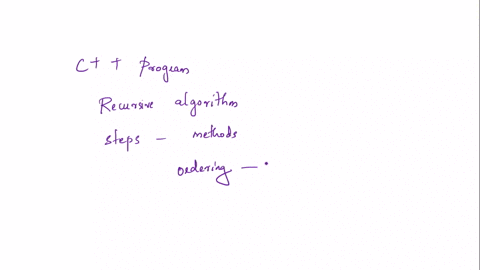 C++ Program
Recursive algorithm
steps - methods
ordering -